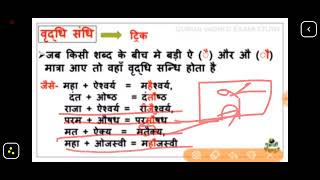 वृद्धि संधि ट्रिक
➤जब किसी शब्द के बीच मे बड़ी ऐ (ै) और औ (ौ)
मात्रा आए तो वहाँ वृद्धि सन्धि होता है
जैसे- महा + ऐश्वर्य = महैश्वर्य,
दंत + ओष्ठ = दंतौष्ठ
राजा + ऐश्वर्य = राजैश्वर्य,
परम + औषध = परमौषध
मत + ऐक्य = मतैक्य,
महा + ओजस्वी = महौजस्वी